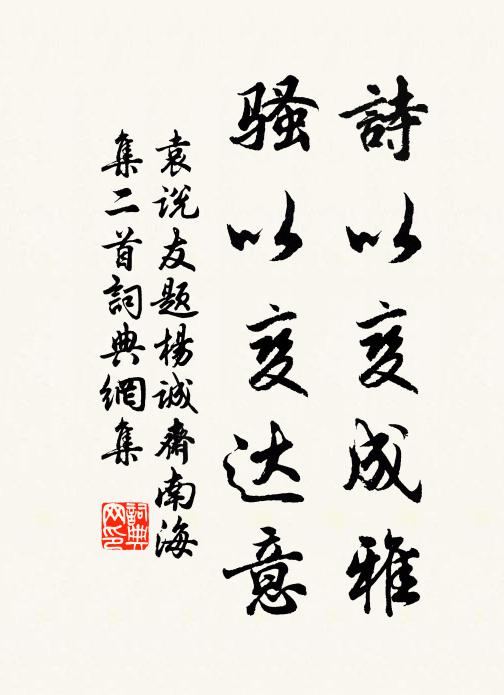 詩以变成雅
騷以变达意
袁说友题楊诚齋南海
集二首詞典網集
詞典
网印